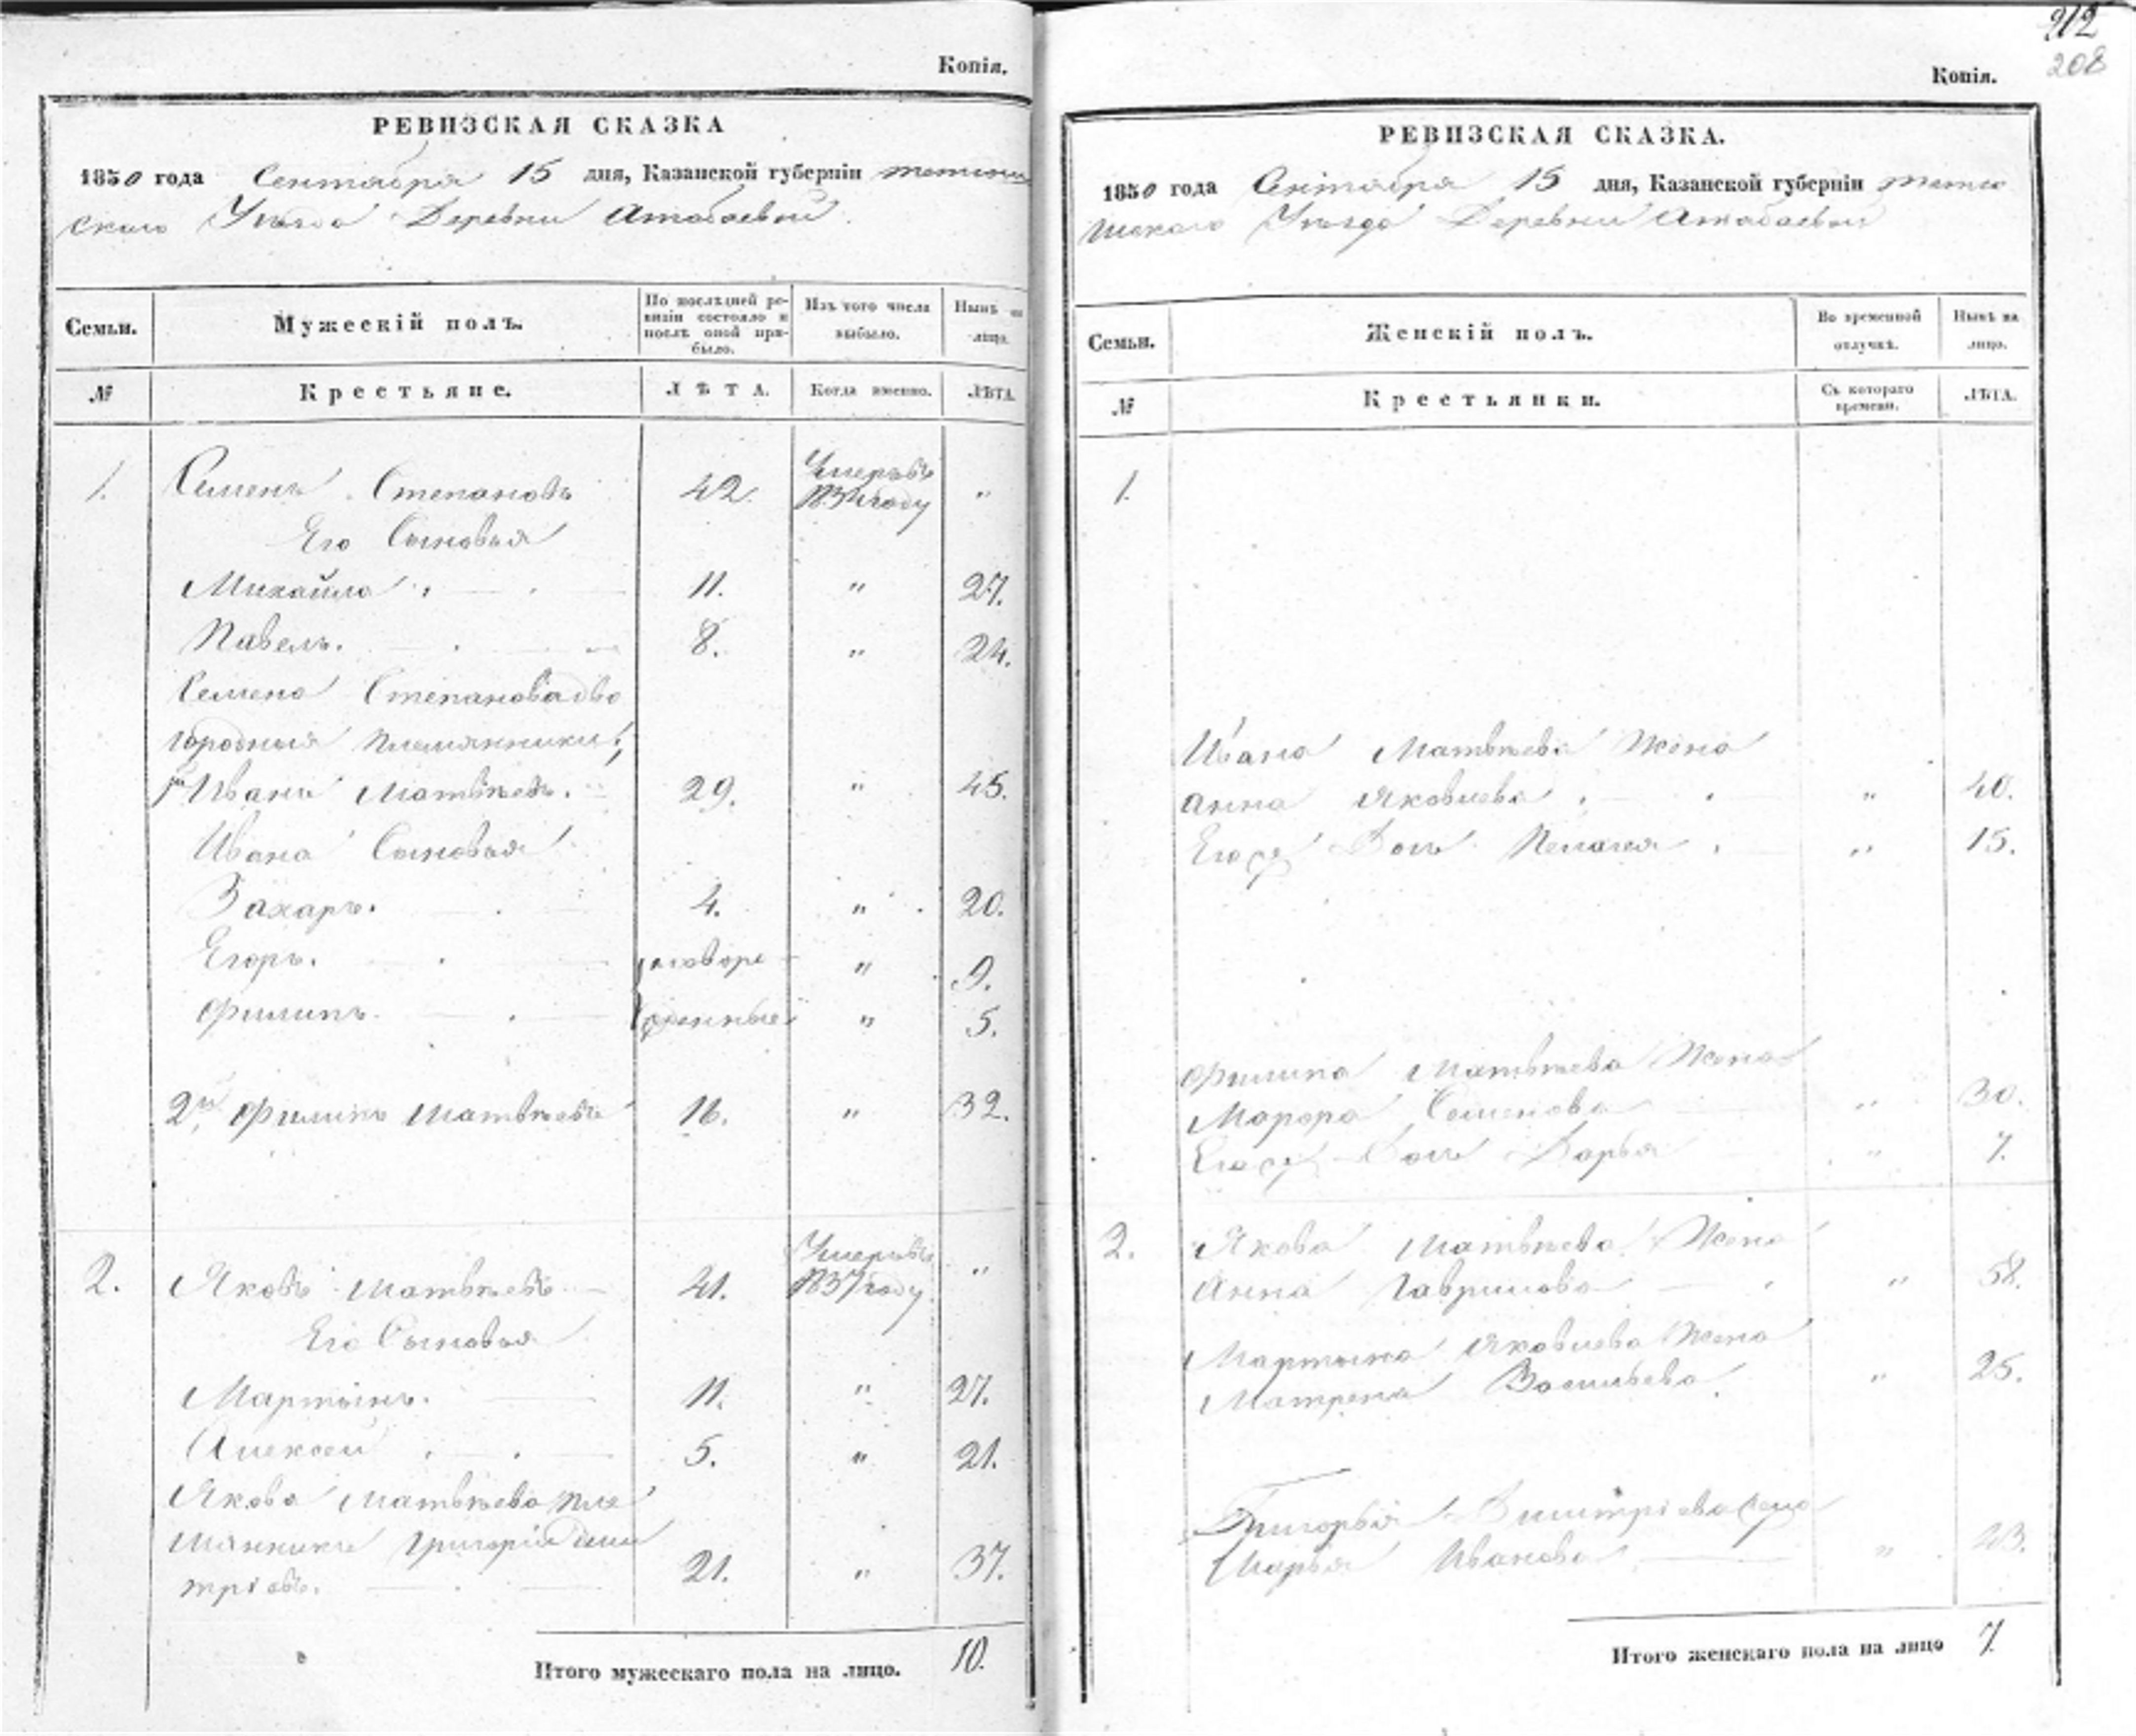 Копія.
РЕВИЗСКАЯ СКАЗКА
1850 года Сентября 15 дня, Казанской губерніи тетюш
скаго Уѣзда Деревни Атабаевой.
Семьи.
Мужескій полъ.
По послѣдней ре-
визіи состояло и
послѣ оной при-
было.
Изъ того числа
выбыло.
Нынѣ на
лицо.
№
Крестьяне.
ЛѢТА.
Когда именно.
ЛѢТА.
1. Семенъ Степановъ 42. Умеръ въ "
183 году
Его Сыновья
Михайло 11. " 27.
Павелъ. 8. " 24.
Семена Степанова дво
юродныя племянники:
1й Иванъ Матвѣевъ. 29. " 45.
Ивана Сыновья
Захаръ. 4. " 20.
Егоръ. " 9.
Филипъ. " 5.
2й Филипъ Матвѣевъ 16. " 32.
2. Яковъ Матвѣевъ 41. Умеръ въ "
1837 году
Его Сыновья
Мартынъ. 11. " 27.
Алексей 5. " 21.
Якова Матвѣева пле
мянникъ Григорій Дми
тріевъ. 21. " 37.
Итого мужескаго пола на лицо. 10.
212
208
Копія.
РЕВИЗСКАЯ СКАЗКА.
1850 года Сентября 15 дня, Казанской губерніи тетю
шскаго Уѣзда Деревни Атабаевой
Семьи.
Женскій полъ.
Во временной
отлучкѣ.
Нынѣ на
лицо.
№
Крестьянки.
Съ котораго
времени.
ЛѢТА.
1.
Ивана Матвѣева Жена
Анна Яковлева " 40.
Его Дочь Пелагея " 15.
Филипа Матвѣева Жена
Семенова " 30.
Его Дочь Дарья " 7.
2. Якова Матвѣева Жена
Анна Гаврилова " 58.
Мартына Яковлева Жена
Матрена Васильева. " 25.
Григорья Дмитріева Жена
Марья Иванова " 23.
Итого женскаго пола на лицо 7.